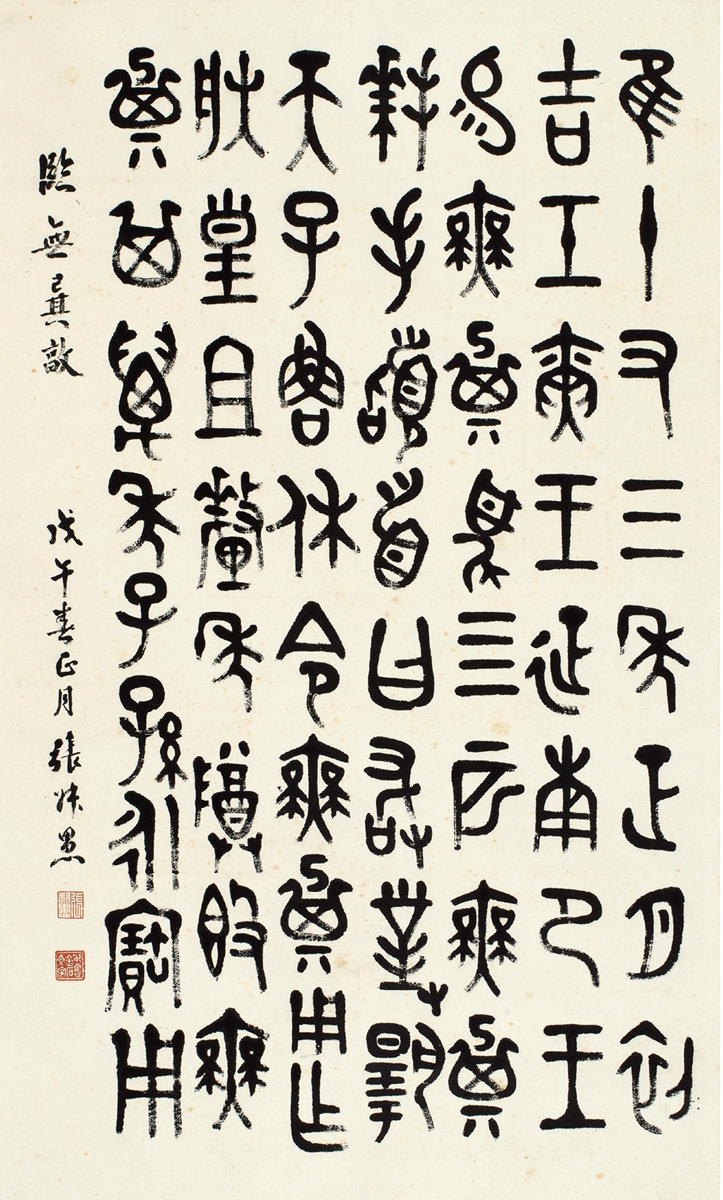 隹十又三年正月初
吉壬寅王征南尸王
易無㠱馬四匹無㠱
拜手稽首曰敢對揚
天子魯休令無㠱用乍
朕皇且釐季尊𣪘無
㠱其萬年子孫永寶用
臨無㠱敦 戊午春正月 張叔愚